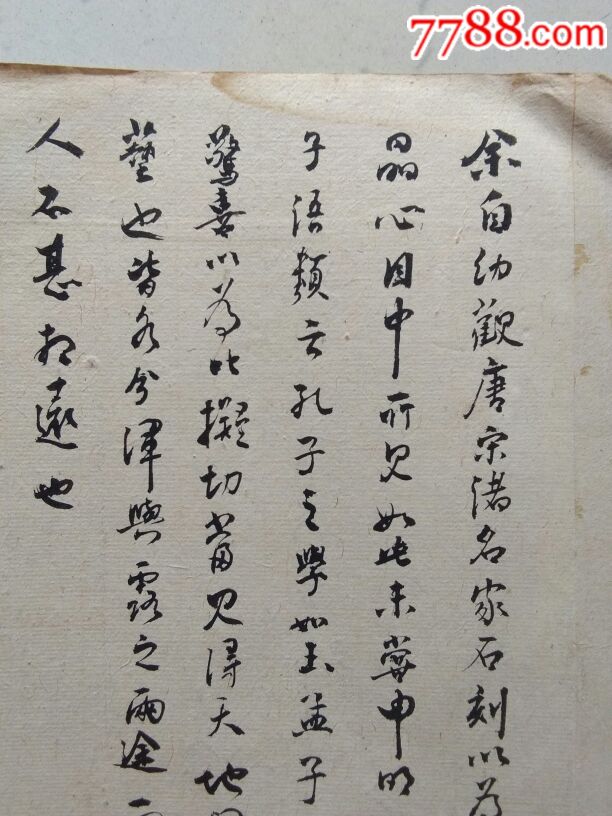 7788.com
余自幼觀唐宋諸名家石刻以為
晶心目中所見如此未嘗申明
子語類云孔子之學如玉孟子
驚喜以為比擬切當見得天地
藝也皆各分渾與露之兩途
人不甚相遠也